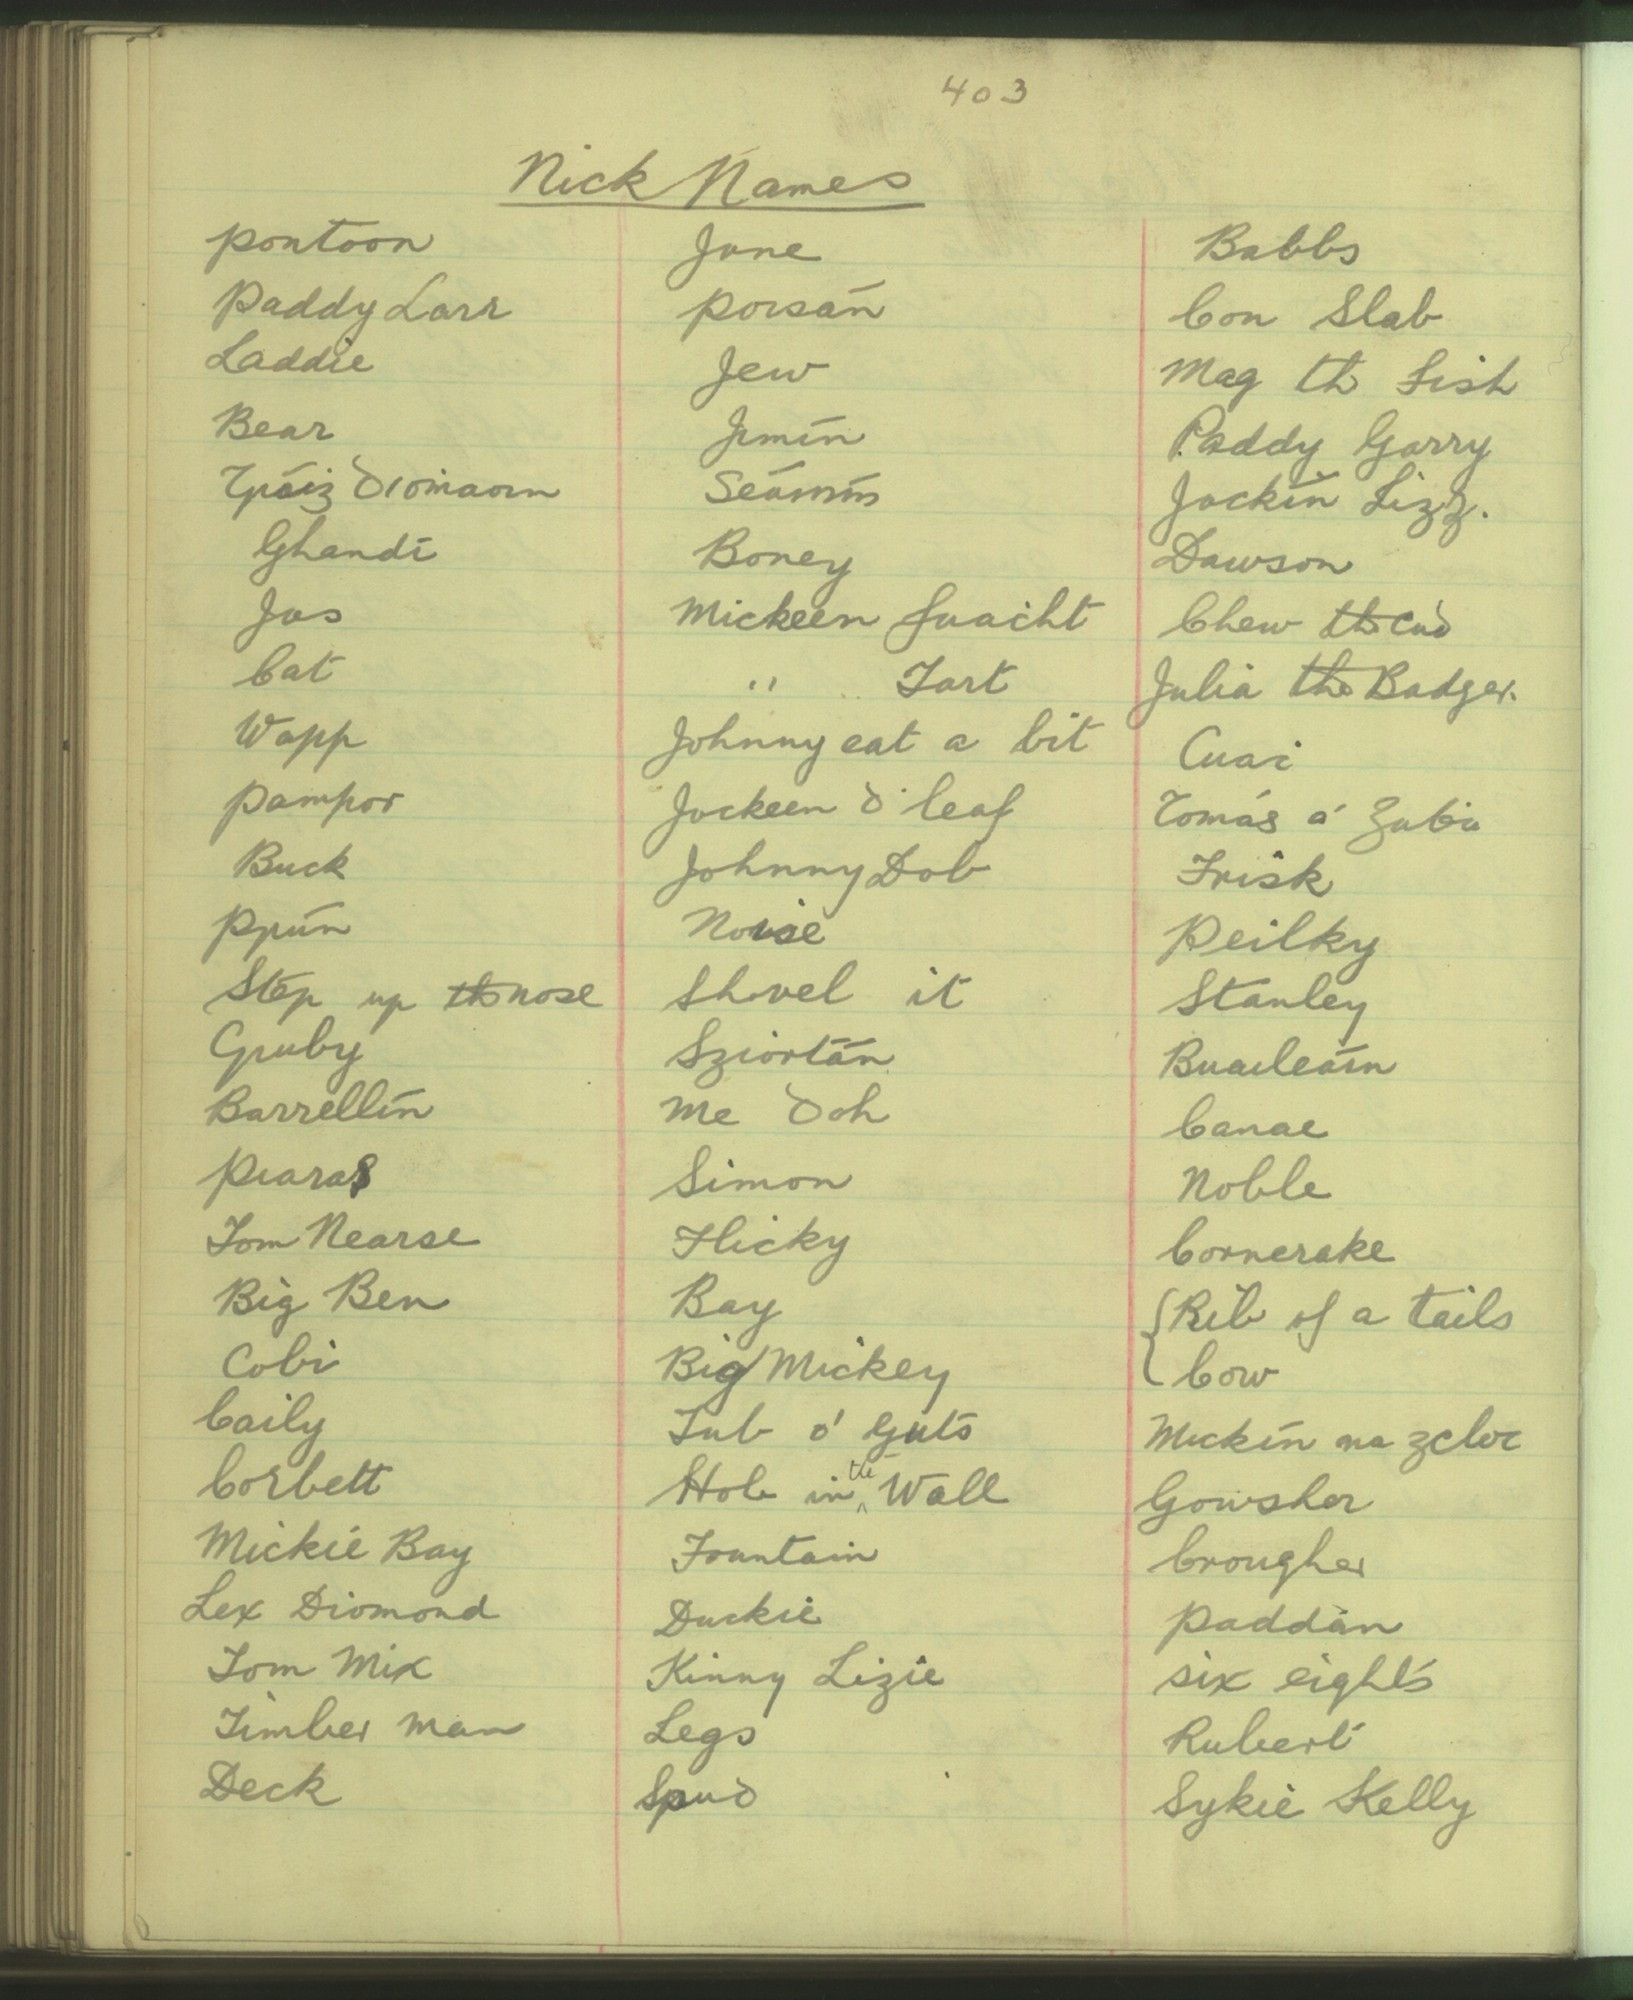 403
Nick Names
Pontoon
Paddy Larr
Laddie
Bear
Ghandi
Jas
Cat
Wapp
Pampor
Buck
Step up the nose
Gruby
Barrellín
Piaras
Tom Nearse
Big Ben
Cobi
Caily
Corbett
Mickie Bay
Lex Diomond
Tom Mix
Timber man
Deck
June
Poisán
Jew
Jimín
Boney
Mickeen fuacht
" Tart
Johnny eat a bit
Jockeen d' leaf
Johnny Dob
Noise
Shovel it
Sgiortán
Me Doh
Simon
Flicky
Bay
Big Mickey
Tub o' Guts
Hole in the Wall
Fountain
Duckie
Kinny Lizie
Legs
Spud
Babbs
Con Slab
Mag the fish
Paddy Garry
Jackín Lizz.
Dawson
Chew the Cud
Julia the Badger.
Cuaí
Tomás a' gabha
Frisk
Peilky
Stanley
Buaileáin
Canae
Noble
Cornerake
Rib of a tails
Cow
Mickín na gcloc
Gowsher
Crougher
Paddán
Six eights
Rubert
Sykie Kelly